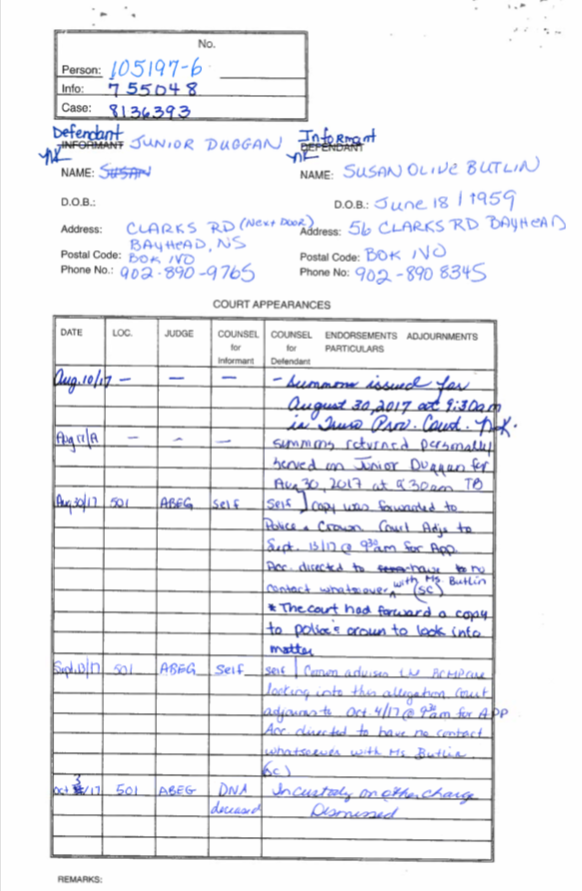 No.
Person: 105197-6
Info: 755048
Case: 8136393
Defendant Informant
INFORMANT JUNIOR DUGGAN DEFENDANT
NK NK
NAME: SUSAN NAME: SUSAN OLIVE BUTLIN
D.O.B.: D.O.B.: June 18/1959
Address: CLARKS RD (Next Door) Address: 56 CLARKS RD BAYHEAD
BAYHEAD, NS
Postal Code: BOK IVO Postal Code: BOK IVO
Phone No.: 902-890-9765 Phone No: 902-890 8345
COURT APPEARANCES
DATE LOC. JUDGE COUNSEL for Informant COUNSEL for Defendant ENDORSEMENTS PARTICULARS ADJOURNMENTS
Aug.10/17 - - - - Summons issued for
August 30, 2017 at 9:30am
in Truro Prov. Court. N.K.
Aug 11/17 - - - summons returned personally
served on Junior Duggan for
Aug 30, 2017 at 9.30am TB
Aug 30/17 501 ABEG Self Self ] Copy was forwarded to
Police & Crown Court Adjs to
Sept. 13/17 @ 9 30 am for App
Acc. directed to have no
contact whatsoever with Ms. Butlin
(SC)
* The court had forward a copy
to police & crown to look into
matter
Sept.13/17 501 ABEG Self Self ] Crown advises RCMP are
looking into this allegation Court
adjourns to Oct 4/17 @ 9 30 am for APP
Acc directed to have no contact
whatsoever with Ms. Butlin
(SC)
Oct 3/17 501 ABEG DNA In custody on other charge
deceased Dismissed
REMARKS: